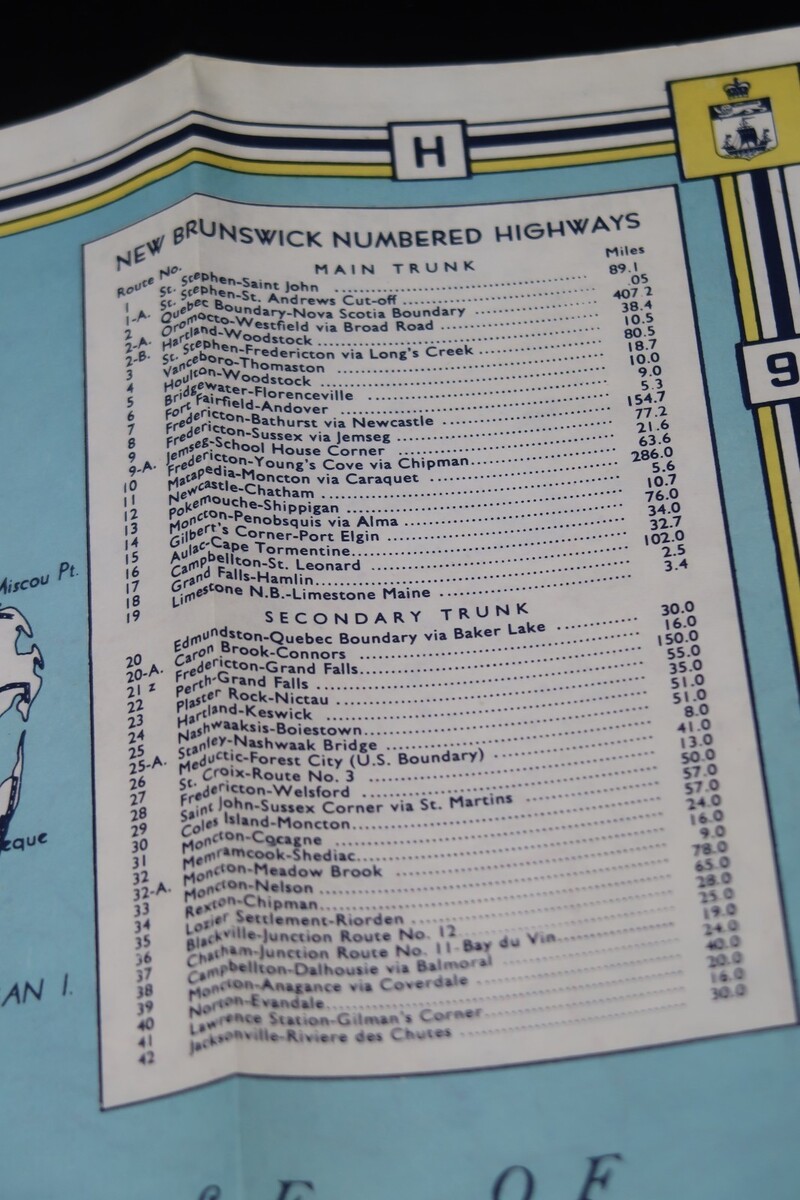 H
NEW BRUNSWICK NUMBERED HIGHWAYS
MAIN TRUNK
Route No. Miles
1 St. Stephen-Saint John 89.1
1-A. St. Stephen-St. Andrews Cut-off .05
2 Quebec Boundary-Nova Scotia Boundary 407.2
2-A. Oromocto-Westfield via Broad Road 38.4
2-B. Hartland-Woodstock 10.5
3 St. Stephen-Fredericton via Long's Creek 80.5
4 Vanceboro-Thomaston 18.7
5 Houlton-Woodstock 10.0
6 Bridgewater-Florenceville 9.0
7 Fort Fairfield-Andover 5.3
8 Fredericton-Bathurst via Newcastle 154.7
9 Fredericton-Sussex via Jemseg 77.2
9-A. Jemseg-School House Corner 21.6
10 Fredericton-Young's Cove via Chipman 63.6
11 Matapedia-Moncton via Caraquet 286.0
12 Newcastle-Chatham 5.6
13 Pokemouche-Shippigan 10.7
14 Moncton-Penobsquis via Alma 76.0
15 Gilbert's Corner-Port Elgin 34.0
16 Aulac-Cape Tormentine 32.7
17 Campbellton-St. Leonard 102.0
18 Grand Falls-Hamlin 2.5
19 Limestone N.B.-Limestone Maine 3.4
SECONDARY TRUNK
20 Edmundston-Quebec Boundary via Baker Lake 30.0
20-A. Caron Brook-Connors 16.0
21 z Fredericton-Grand Falls 150.0
22 Perth-Grand Falls 55.0
23 Plaster Rock-Nictau 35.0
24 Hartland-Keswick 51.0
25 Nashwaaksis-Boiestown 51.0
25-A. Stanley-Nashwaak Bridge 8.0
26 Meductic-Forest City (U.S. Boundary) 41.0
27 St. Croix-Route No. 3 13.0
28 Fredericton-Welsford 50.0
29 Saint John-Sussex Corner via St. Martins 57.0
30 Coles Island-Moncton 57.0
31 Moncton-Cocagne 24.0
32 Memramcook-Shediac 16.0
32-A. Moncton-Meadow Brook 9.0
33 Moncton-Nelson 78.0
34 Rexton-Chipman 65.0
35 Lozier Settlement-Riorden 28.0
36 Blackville-Junction Route No. 12 25.0
37 Chatham-Junction Route No. 11 Bay du Vin 19.0
38 Campbellton-Dalhousie via Balmoral 24.0
39 Moncton-Anagance via Coverdale 40.0
40 Norton-Evandale 20.0
41 Lawrence Station-Gilman's Corner 16.0
42 Jacksonville-Riviere des Chutes 30.0
9
Miscou Pt.
eque
AN I.
F OF